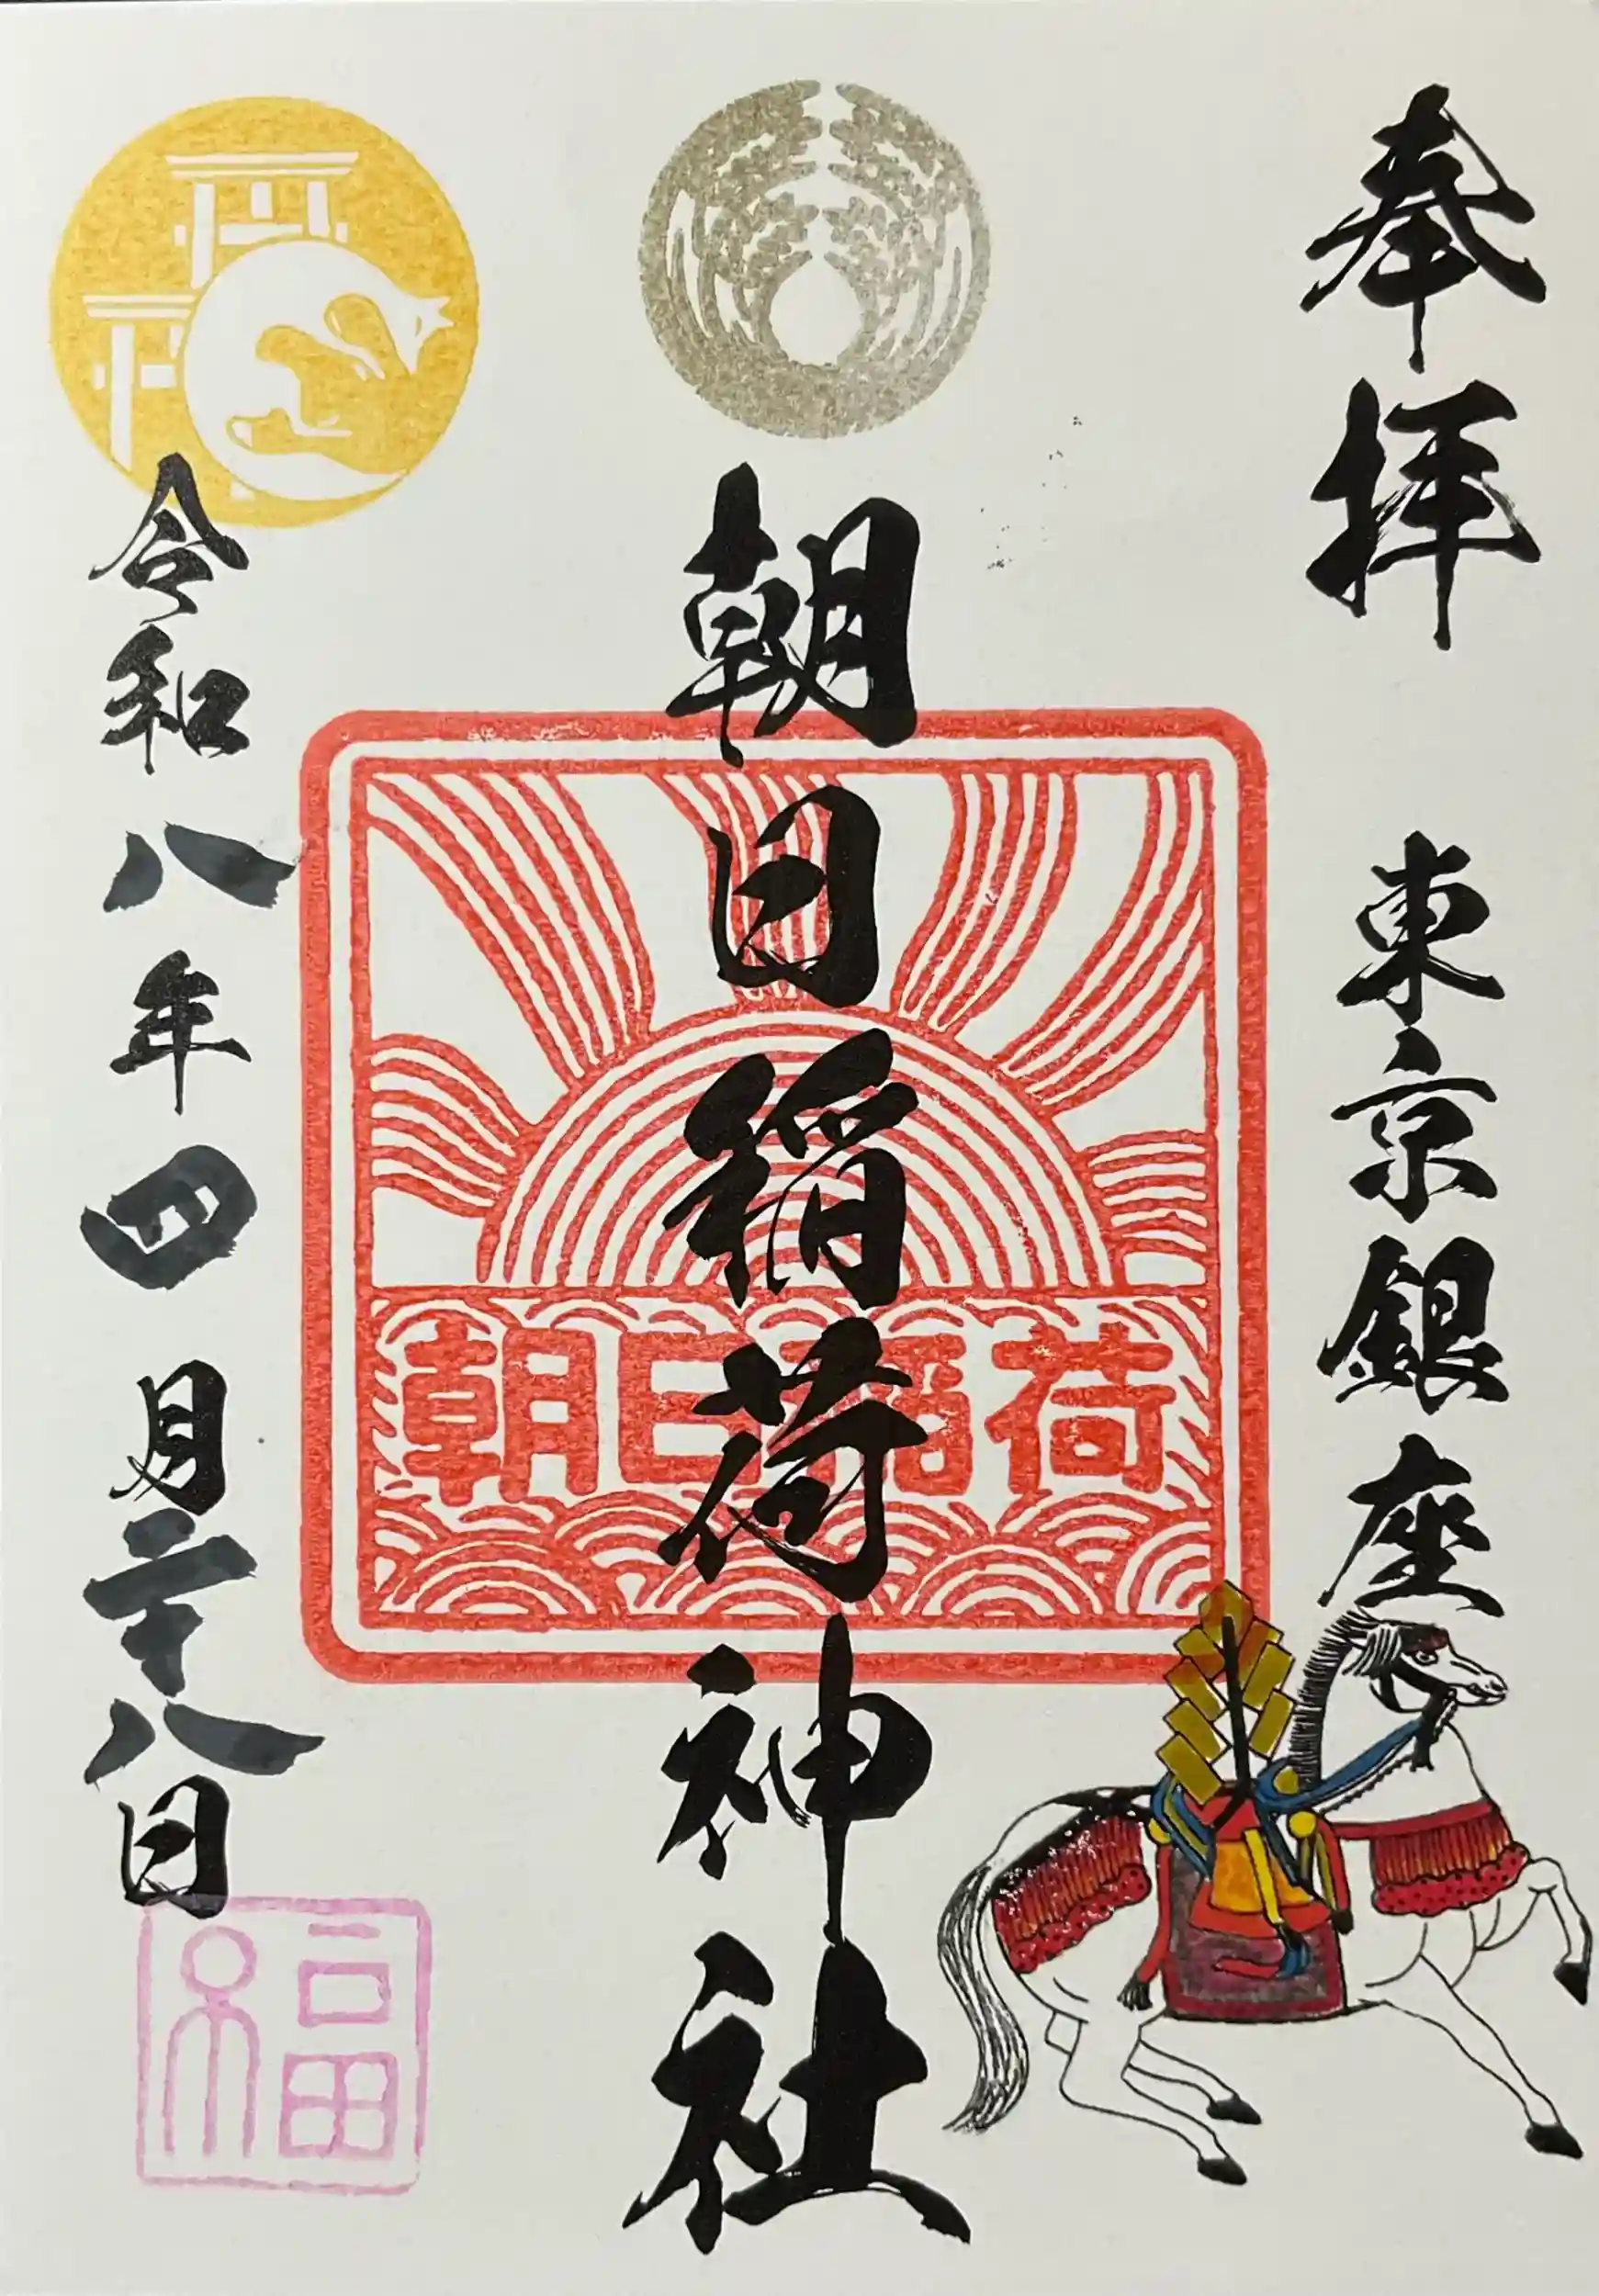 奉拝 東京銀座
朝日稲荷神社
朝日稲荷
令和八年四月二十八日
福